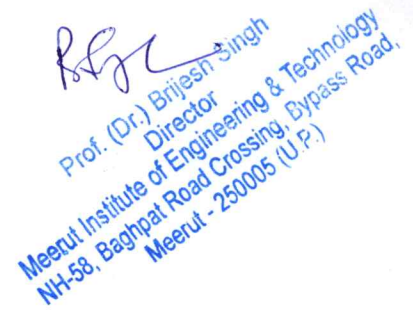 Prof. (Dr.) Brijesh Singh
Director
Meerut Institute of Engineering & Technology
NH-58, Baghpat Road Crossing, Bypass Road,
Meerut - 250005 (U.P.)